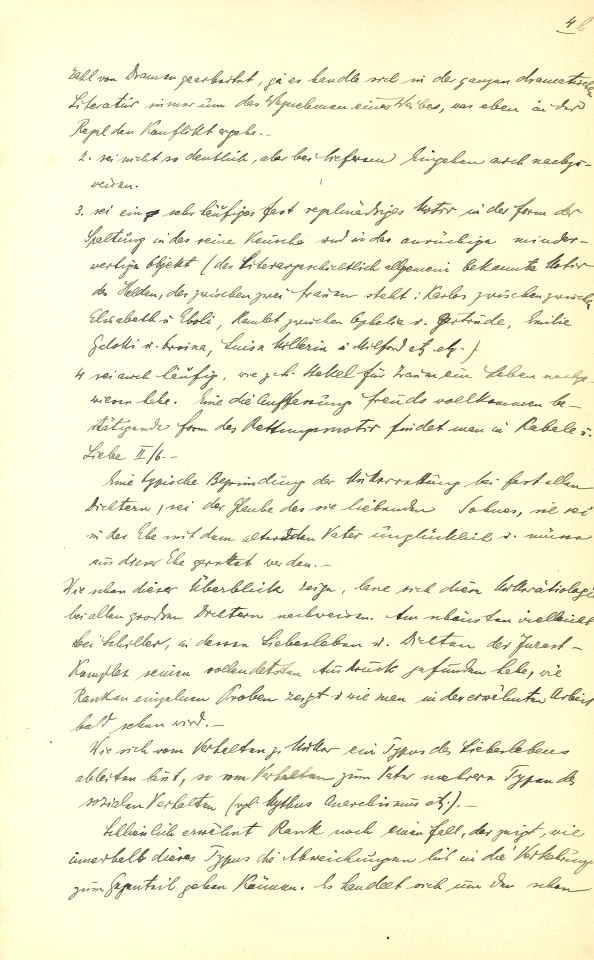 4
zahl von Dramen gearbeitet, ja es handle sich in der ganzen dramatischen
Literatur immer um das Wegnehmen eines Weibes, was eben in der
Regel den Konflikt ergebe. —
2. sei nicht so deutlich, aber bei tieferem Eingehen auch nachzu-
weisen.
3. sei ein sehr häufiges fast regelmäßiges Motiv in der Form der
Spaltung in das reine Keusche und in das anrüchige minder-
wertige Objekt (das literargeschichtlich allgemein bekannte Motiv
des Helden, der zwischen zwei Frauen steht: Karlos zwischen
Elisabeth u Eboli, Hamlet zwischen Ophelia u. Gertrude, Emilie
Galotti u. Orsina, Luise Millerin u Milford etz etz.)
4 sei auch häufig, wie für Traum ein Leben nachge-
wiesen habe. Eine die Auffassung Freuds vollkommen be-
stätigende Form des Rettungsmotiv findet man in Kabale u.
Liebe II/6. —
Eine typische Begründung der Mutterrettung bei fast allen
Dichtern, sei der Glaube des sie liebenden Sohnes, sie sei
in der Ehe mit dem alternden Vater unglücklich u. müsse
aus dieser Ehe gerettet werden. —
Wie schon dieser Überblick zeige, lasse sich diese
bei allen großen Dichtern nachweisen. Am schönsten vielleicht
bei Schiller, in dessen Liebesleben u. Dichten der Inzest-
Komplex seinen vollendetsten Ausdruck gefunden habe, wie
Rank an einzelnen Proben zeigt u wie man in der erwähnten Arbeit
bald sehen wird. —
Wie sich vom Verhalten z. Mutter ein Typus des Liebeslebens
ableiten lässt, so vom Verhalten zum Vater mehrere Typen des
sozialen Verhalten (vgl. Mythus Anarchismus etz.). —
Schliesslich erwähnt Rank noch einen Fall, der zeigt, wie
innerhalb dieses Typus die Abweichungen bis in die Verkehrung
zum Gegenteil gehen können. Es handelt sich um den schon